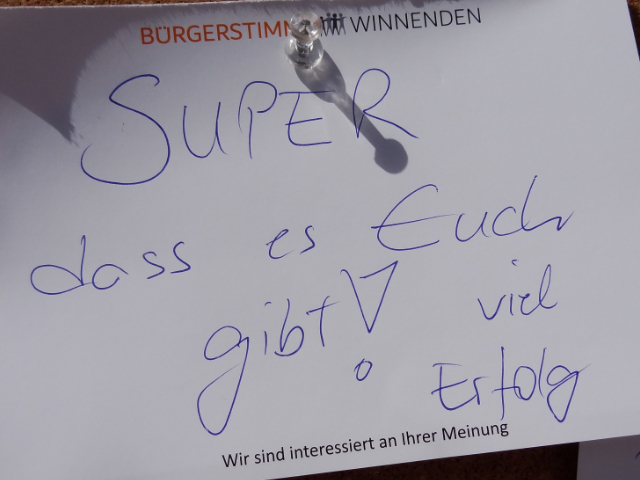 BÜRGERSTIMME WINNENDEN
SUPER
dass es Euch
gibt! viel
Erfolg
Wir sind interessiert an Ihrer Meinung